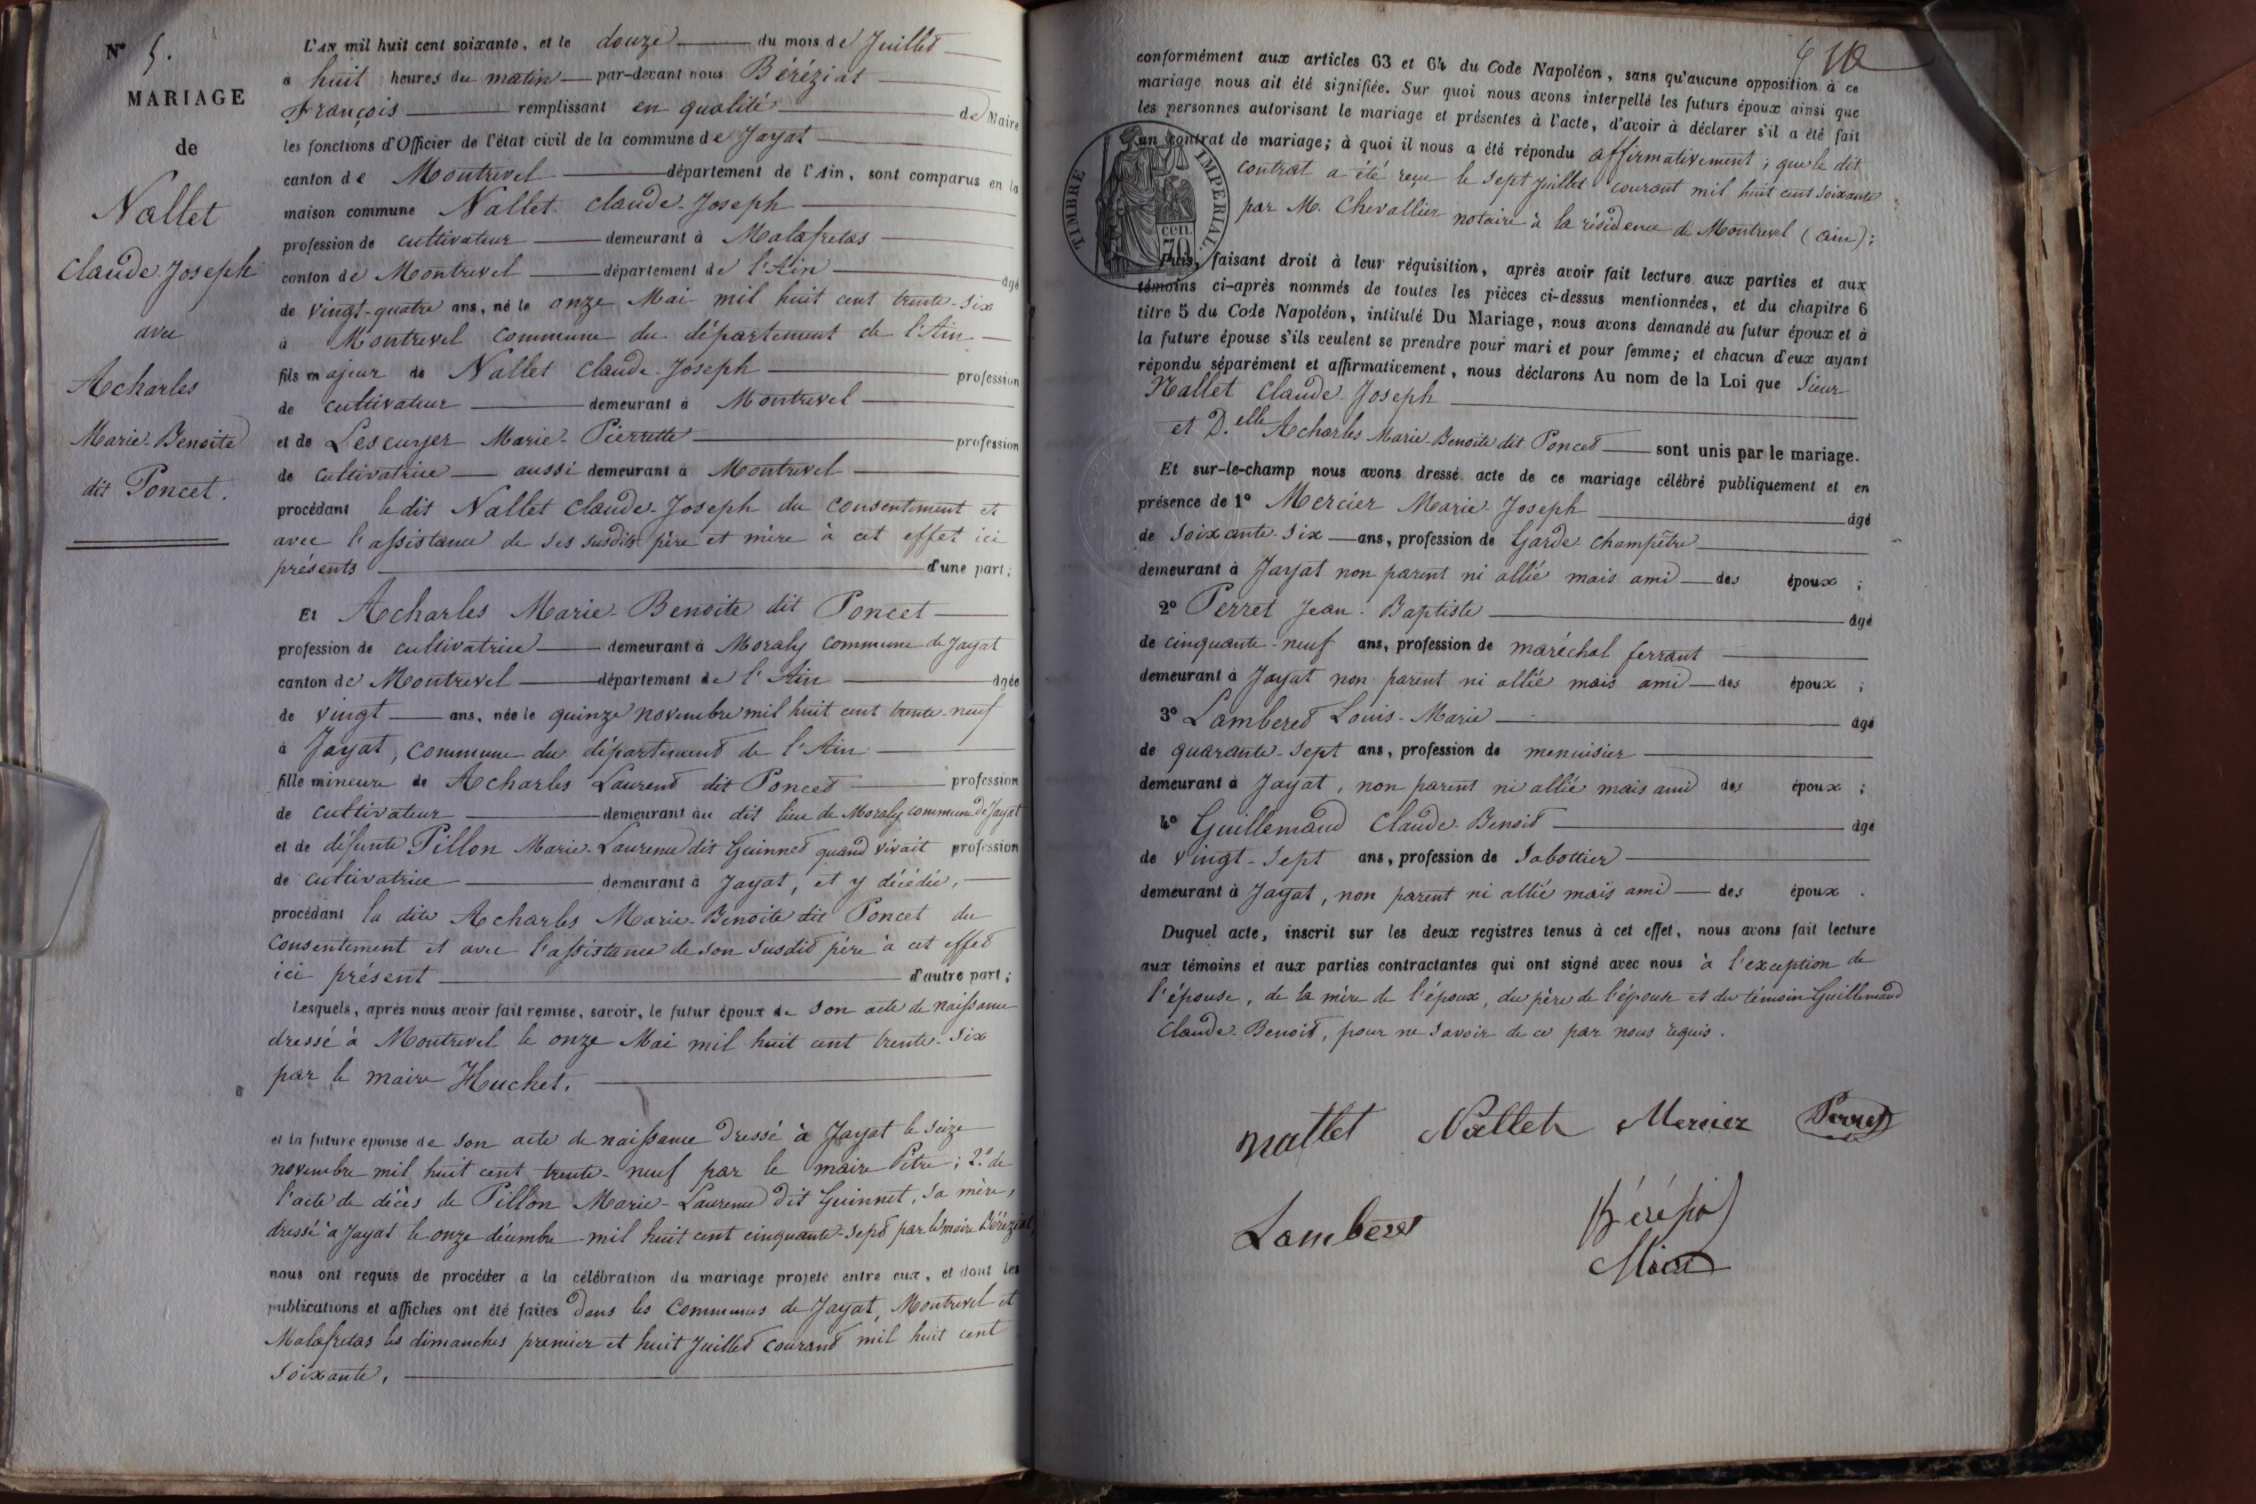 N° 5.
MARIAGE
de
Nallet
Claude Joseph
avec
Acharles
Marie-Benoite
dit Poncet.
L'AN mil huit cent soixante, et le douze du mois de Juillet
à huit heures du matin par-devant nous Béréziat
François remplissant en qualité de Maire
les fonctions d'Officier de l'état civil de la commune de Jayat
canton de Montrevel département de l'Ain, sont comparus en la
maison commune Nallet Claude-Joseph
profession de cultivateur demeurant à Malafretas
canton de Montrevel département de l'Ain âgé
de vingt-quatre ans, né le onze Mai mil huit cent trente-six
à Montrevel commune du département de l'Ain
fils majeur de Nallet Claude-Joseph profession
de cultivateur demeurant à Montrevel
et de Lescuyer Marie-Pierrette profession
de cultivatrice aussi demeurant à Montrevel
procédant le dit Nallet Claude-Joseph du consentement et
avec l'assistance de ses susdits père et mère à cet effet ici
présents d'une part;
Et Acharles Marie-Benoite dit Poncet
profession de cultivatrice demeurant à Moraly commune de Jayat
canton de Montrevel département de l'Ain âgée
de vingt ans, née le quinze novembre mil huit cent trente-neuf
à Jayat, commune du département de l'Ain
fille mineure de Acharles Laurent dit Poncet profession
de cultivateur demeurant au dit lieu de Moraly commune de Jayat
et de défunte Pillon Marie-Laurence dit Guinnet quand vivait profession
de cultivatrice demeurant à Jayat, et y décédée,
procédant la dite Acharles Marie-Benoite dit Poncet du
consentement et avec l'assistance de son susdit père à cet effet
ici présent d'autre part;
Lesquels, après nous avoir fait remise, savoir, le futur époux de son acte de naissance
dressé à Montrevel le onze Mai mil huit cent trente-six
par le maire Huchet.
et la future épouse de son acte de naissance dressé à Jayat le seize
novembre mil huit cent trente-neuf par le maire Pitre; 2° de
l'acte de décès de Pillon Marie-Laurence dit Guinnet, sa mère,
dressé à Jayat le onze décembre mil huit cent cinquante-sept par le maire Béréziat,
nous ont requis de procéder à la célébration du mariage projeté entre eux, et dont les
publications et affiches ont été faites dans les communes de Jayat, Montrevel et
Malafretas les dimanches premier et huit Juillet courant mil huit cent
soixante.
conformément aux articles 63 et 64 du Code Napoléon, sans qu'aucune opposition à ce
mariage nous ait été signifiée. Sur quoi nous avons interpellé les futurs époux ainsi que
les personnes autorisant le mariage et présentes à l'acte, d'avoir à déclarer s'il a été fait
un contrat de mariage; à quoi il nous a été répondu affirmativement; que le dit
contrat a été reçu le sept Juillet courant mil huit cent soixante
par M. Chevallier notaire à la résidence de Montrevel (ain);
TIMBRE IMPERIAL.
70 cen.
Puis, faisant droit à leur réquisition, après avoir fait lecture aux parties et aux
témoins ci-après nommés de toutes les pièces ci-dessus mentionnées, et du chapitre 6
titre 5 du Code Napoléon, intitulé Du Mariage, nous avons demandé au futur époux et à
la future épouse s'ils veulent se prendre pour mari et pour femme; et chacun d'eux ayant
répondu séparément et affirmativement, nous déclarons Au nom de la Loi que Sieur
Nallet Claude-Joseph
et D.elle Acharles Marie-Benoite dit Poncet sont unis par le mariage.
Et sur-le-champ nous avons dressé acte de ce mariage célébré publiquement et en
présence de 1° Mercier Marie-Joseph âgé
de soixante-six ans, profession de Garde-champêtre
demeurant à Jayat non parent ni allié mais ami des époux;
2° Perret Jean-Baptiste âgé
de cinquante-neuf ans, profession de maréchal ferrant
demeurant à Jayat non parent ni allié mais ami des époux;
3° Lamberet Louis-Marie âgé
de quarante-sept ans, profession de menuisier
demeurant à Jayat, non parent ni allié mais ami des époux;
4° Guillemaud Claude-Benoit âgé
de vingt-sept ans, profession de sabottier
demeurant à Jayat, non parent ni allié mais ami des époux.
Duquel acte, inscrit sur les deux registres tenus à cet effet, nous avons fait lecture
aux témoins et aux parties contractantes qui ont signé avec nous à l'exception de
l'épouse, de la mère de l'époux, du père de l'épouse et du témoin Guillemaud
Claude-Benoit, pour ne savoir de ce par nous requis.
nallet Nallet Mercier Perret
Lamberet